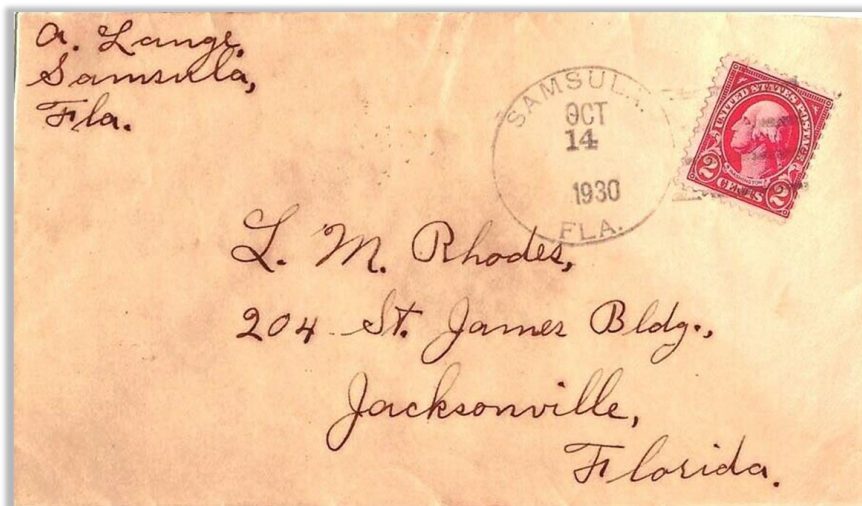 A. Lange,
Samsula,
Fla.
SAMSULA.
OCT
14
1930
FLA.
UNITED STATES POSTAGE
WASHINGTON
2 CENTS 2
L. M. Rhodes,
204 St. James Bldg.,
Jacksonville,
Florida.